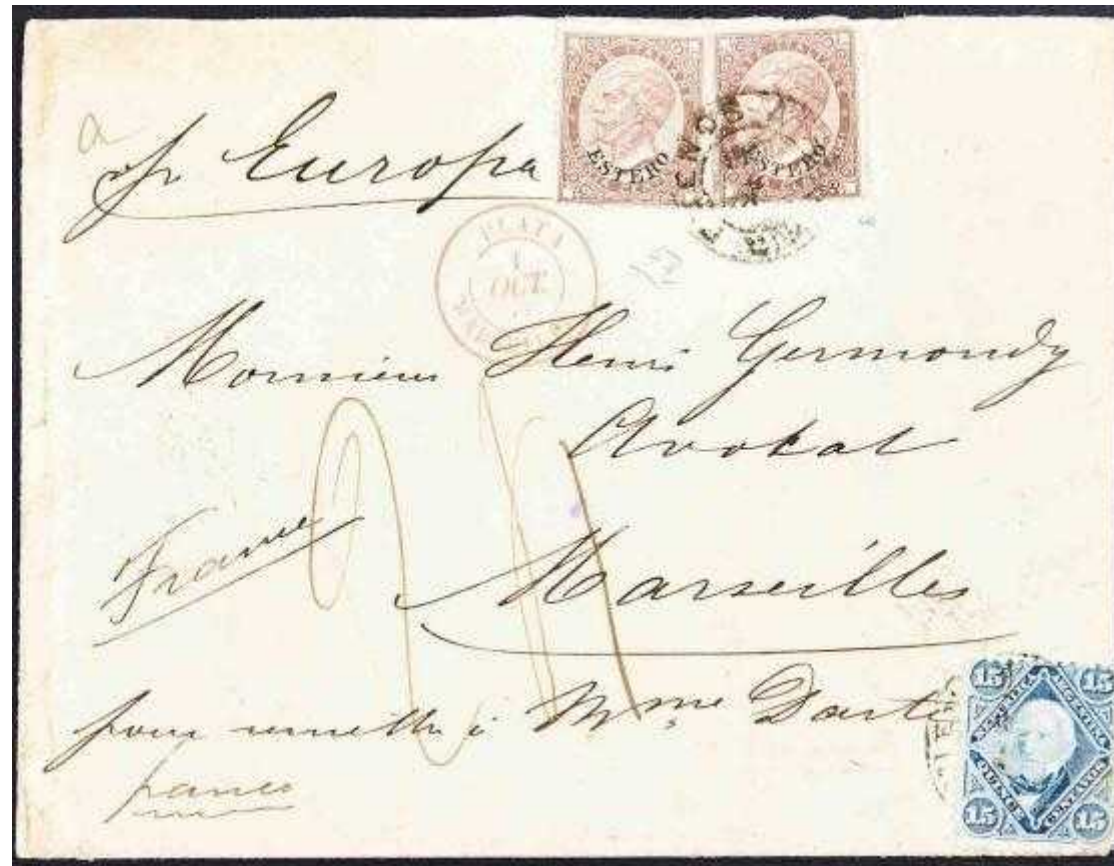 pr Europa
ESTERO ESTERO
PLATA
1
OUT
Monsieur Henri Germondy
Avokat
France
Marseilles
pour remettre à Mme Duarte
franco
15 15
15 15